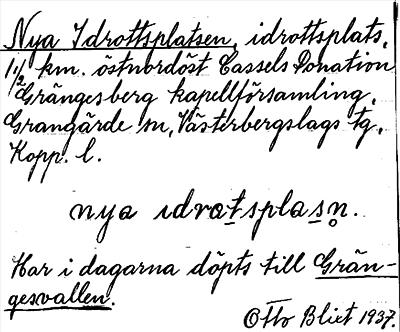 Nya Idrottsplatsen, idrottsplats,
1 1/2 km. östnordöst Cassels Donation
Grängesberg kapellförsamling,
Grangärde sn, Västerbergslags tg,
Kopp. l.
nya idrotsplasn.
Har i dagarna döpts till Grän-
gesvallen.
Otto Bliet 1937.